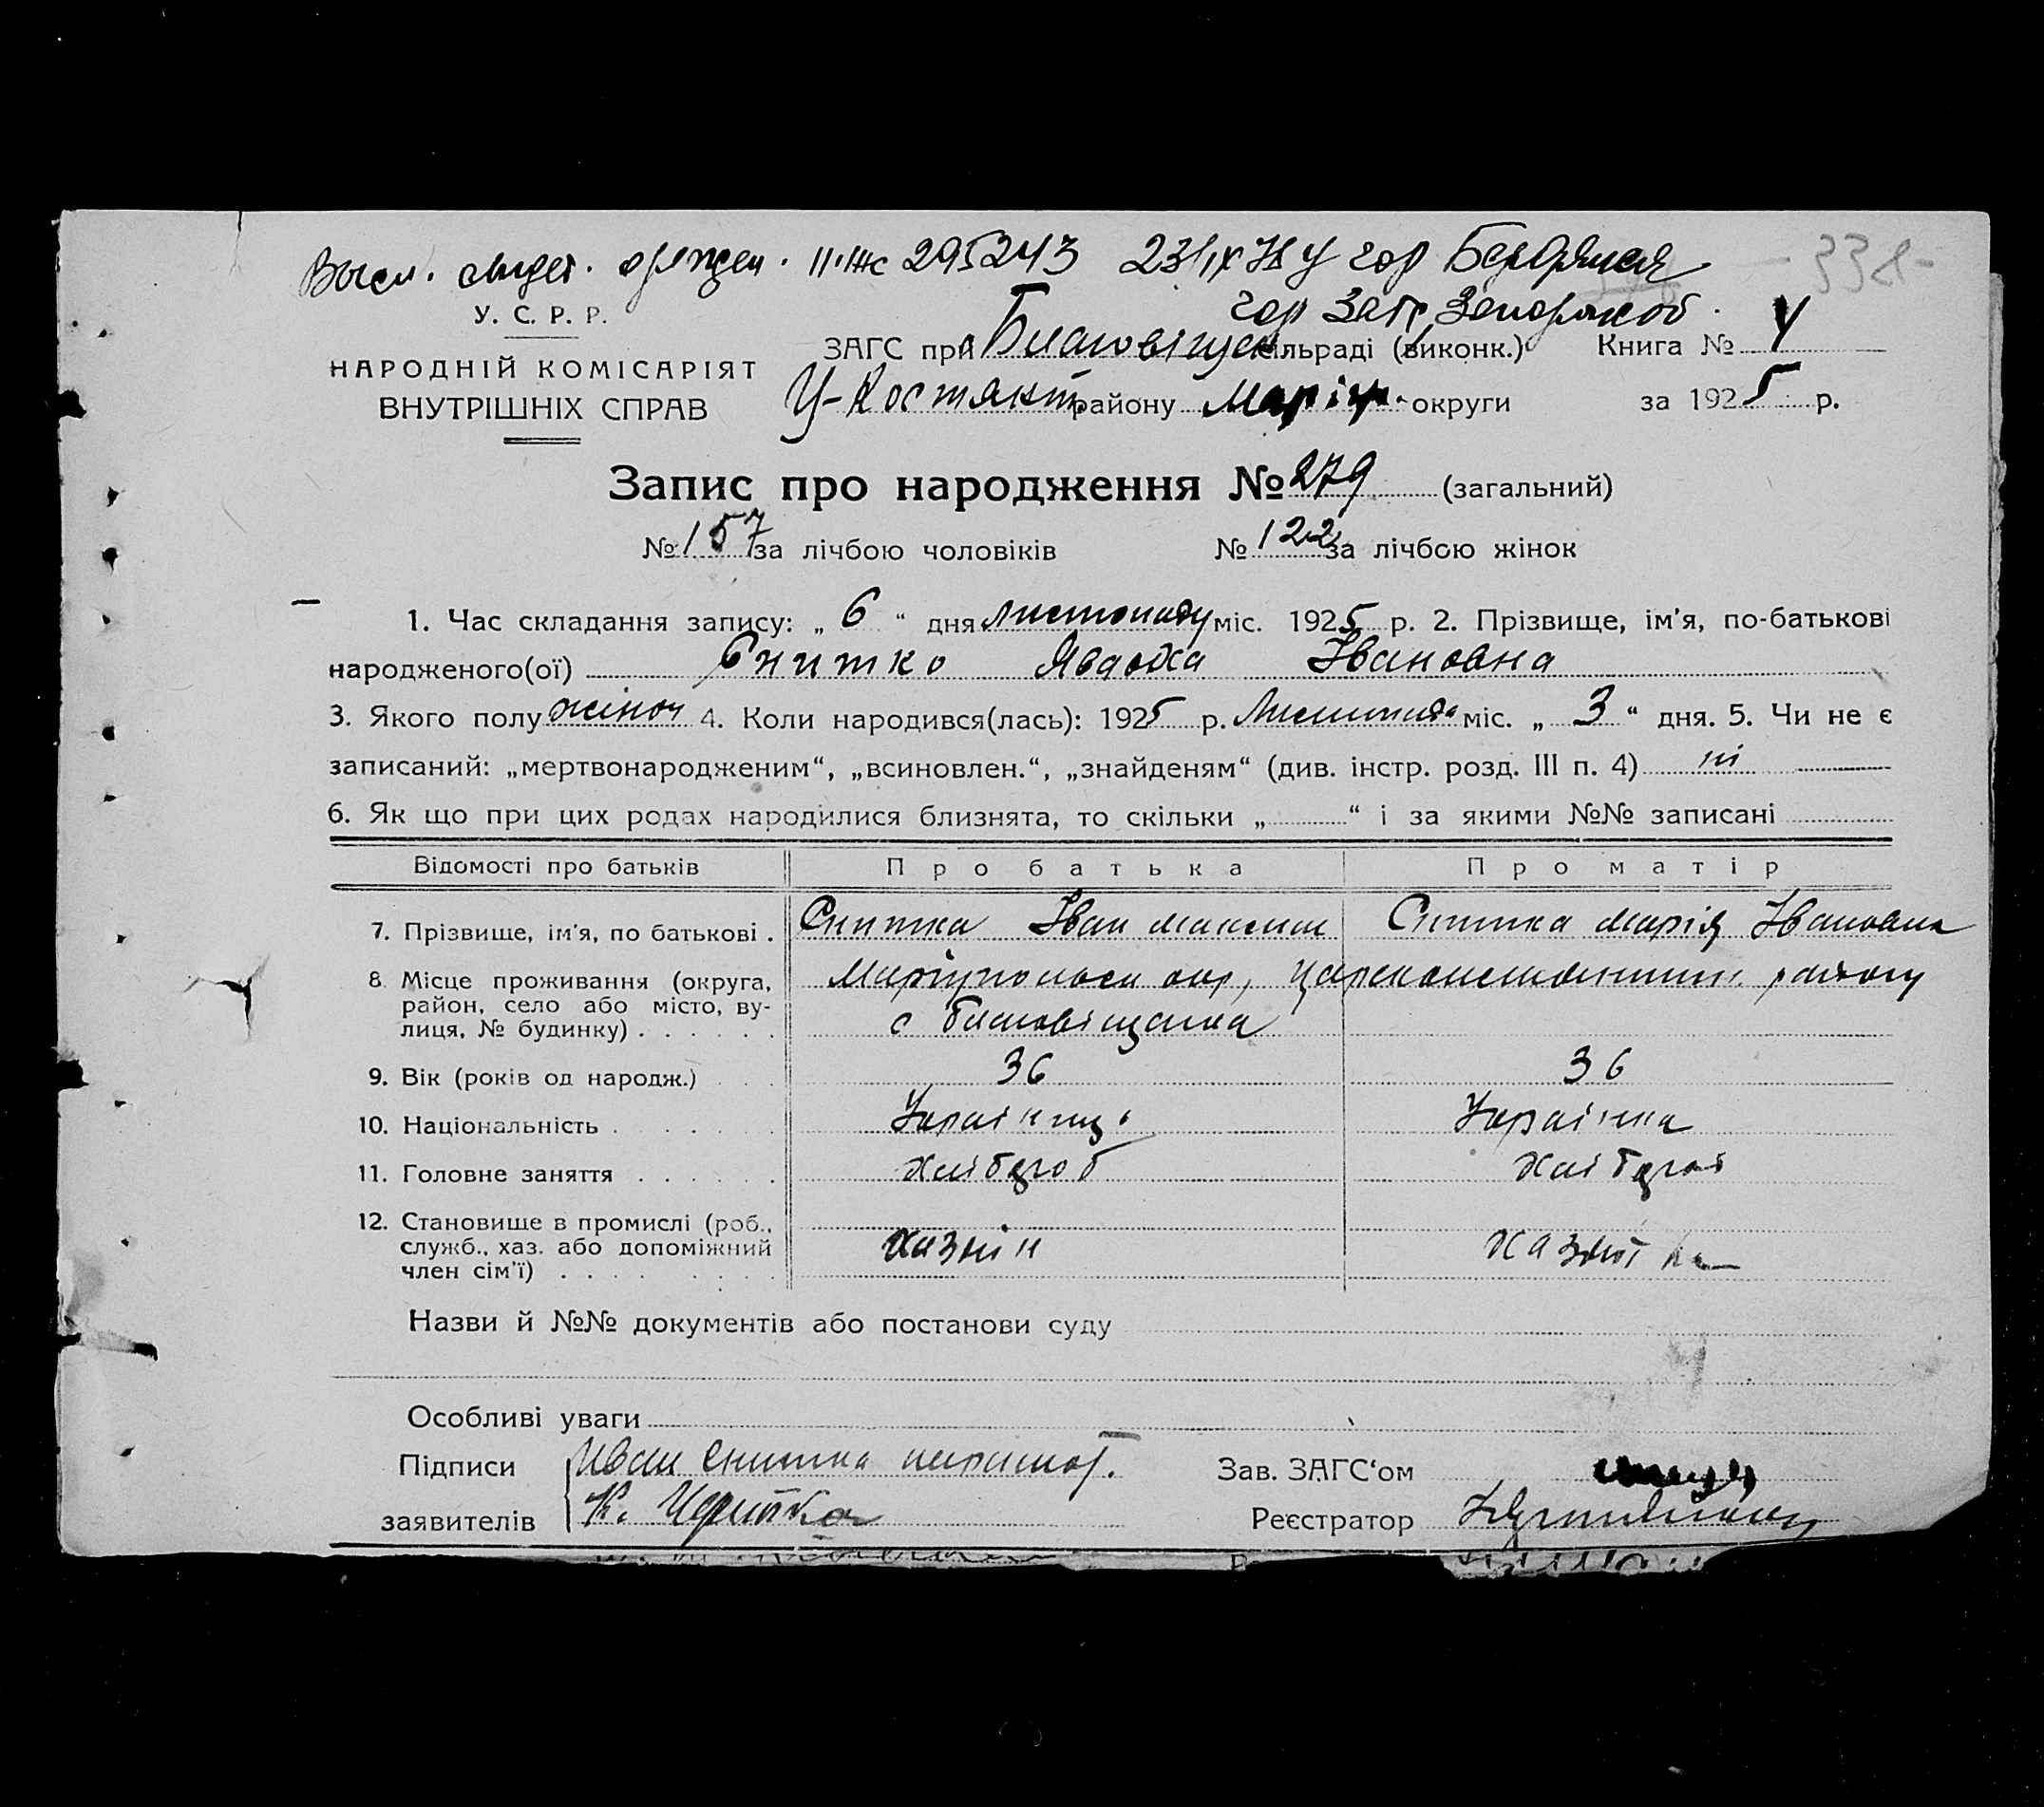 Высл. свидет. о рожден. II-ЖС 295243 23/IX
гор
У. С. Р. Р.
ЗАГС при Благовіщен. сільраді (виконк.) Книга № 4
НАРОДНІЙ КОМІСАРІЯТ
ВНУТРІШНІХ СПРАВ
Ц-Костянт. району Маріуп. округи за 1925 р.
Запис про народження № 279 (загальний)
№ 157 за лічбою чоловіків № 122 за лічбою жінок
1. Час складання запису: „ 6 “ дня листопаду міс. 1925 р. 2. Прізвище, ім'я, по-батькові
народженого(ої) Снитко Явдоха Івановна
3. Якого полу жіноч 4. Коли народився(лась): 1925 р. Листопада міс. „ 3 “ дня. 5. Чи не є
записаний: „мертвонародженим“, „всиновлен.“, „знайденям“ (див. інстр. розд. III п. 4) ні
6. Як що при цих родах народилися близнята, то скільки „ “ і за якими №№ записані
Відомості про батьків Про батька Про матір
7. Прізвище, ім'я, по батькові . Снитка Іван Максим Снитка Марія Івановна
8. Місце проживання (округа, район, село або місто, вулиця, № будинку) Маріупольск окр, Царекостянтин. району
с Благовіщенка
9. Вік (років од народж.) 36 36
10. Національність Українець Українка
11. Головне заняття хлібороб хлібороб
12. Становище в промислі (роб., служб., хаз. або допоміжний член сім'ї) хазяїн хазяїка
Назви й №№ документів або постанови суду
Особливі уваги
Підписи Иван Снитка
Зав. ЗАГС‘ом
заявителів К.
Реєстратор